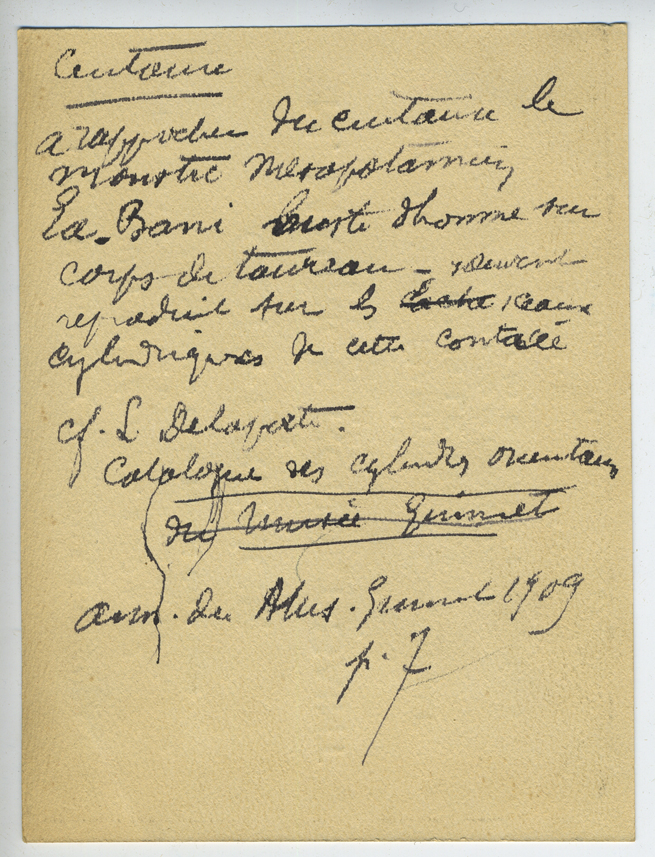 Centaure
a rapprocher du centaure le
monstre mesopotamien
Ea-Bani buste d'homme sur
corps de taureau - souvent
reproduit sur les sceaux
cylindriques de cette contrée
cf. L. Delaporte.
Catalogue des cylindres orientaux
du Musée Guimet
ann. du Mus. Guimet 1909
p. 7